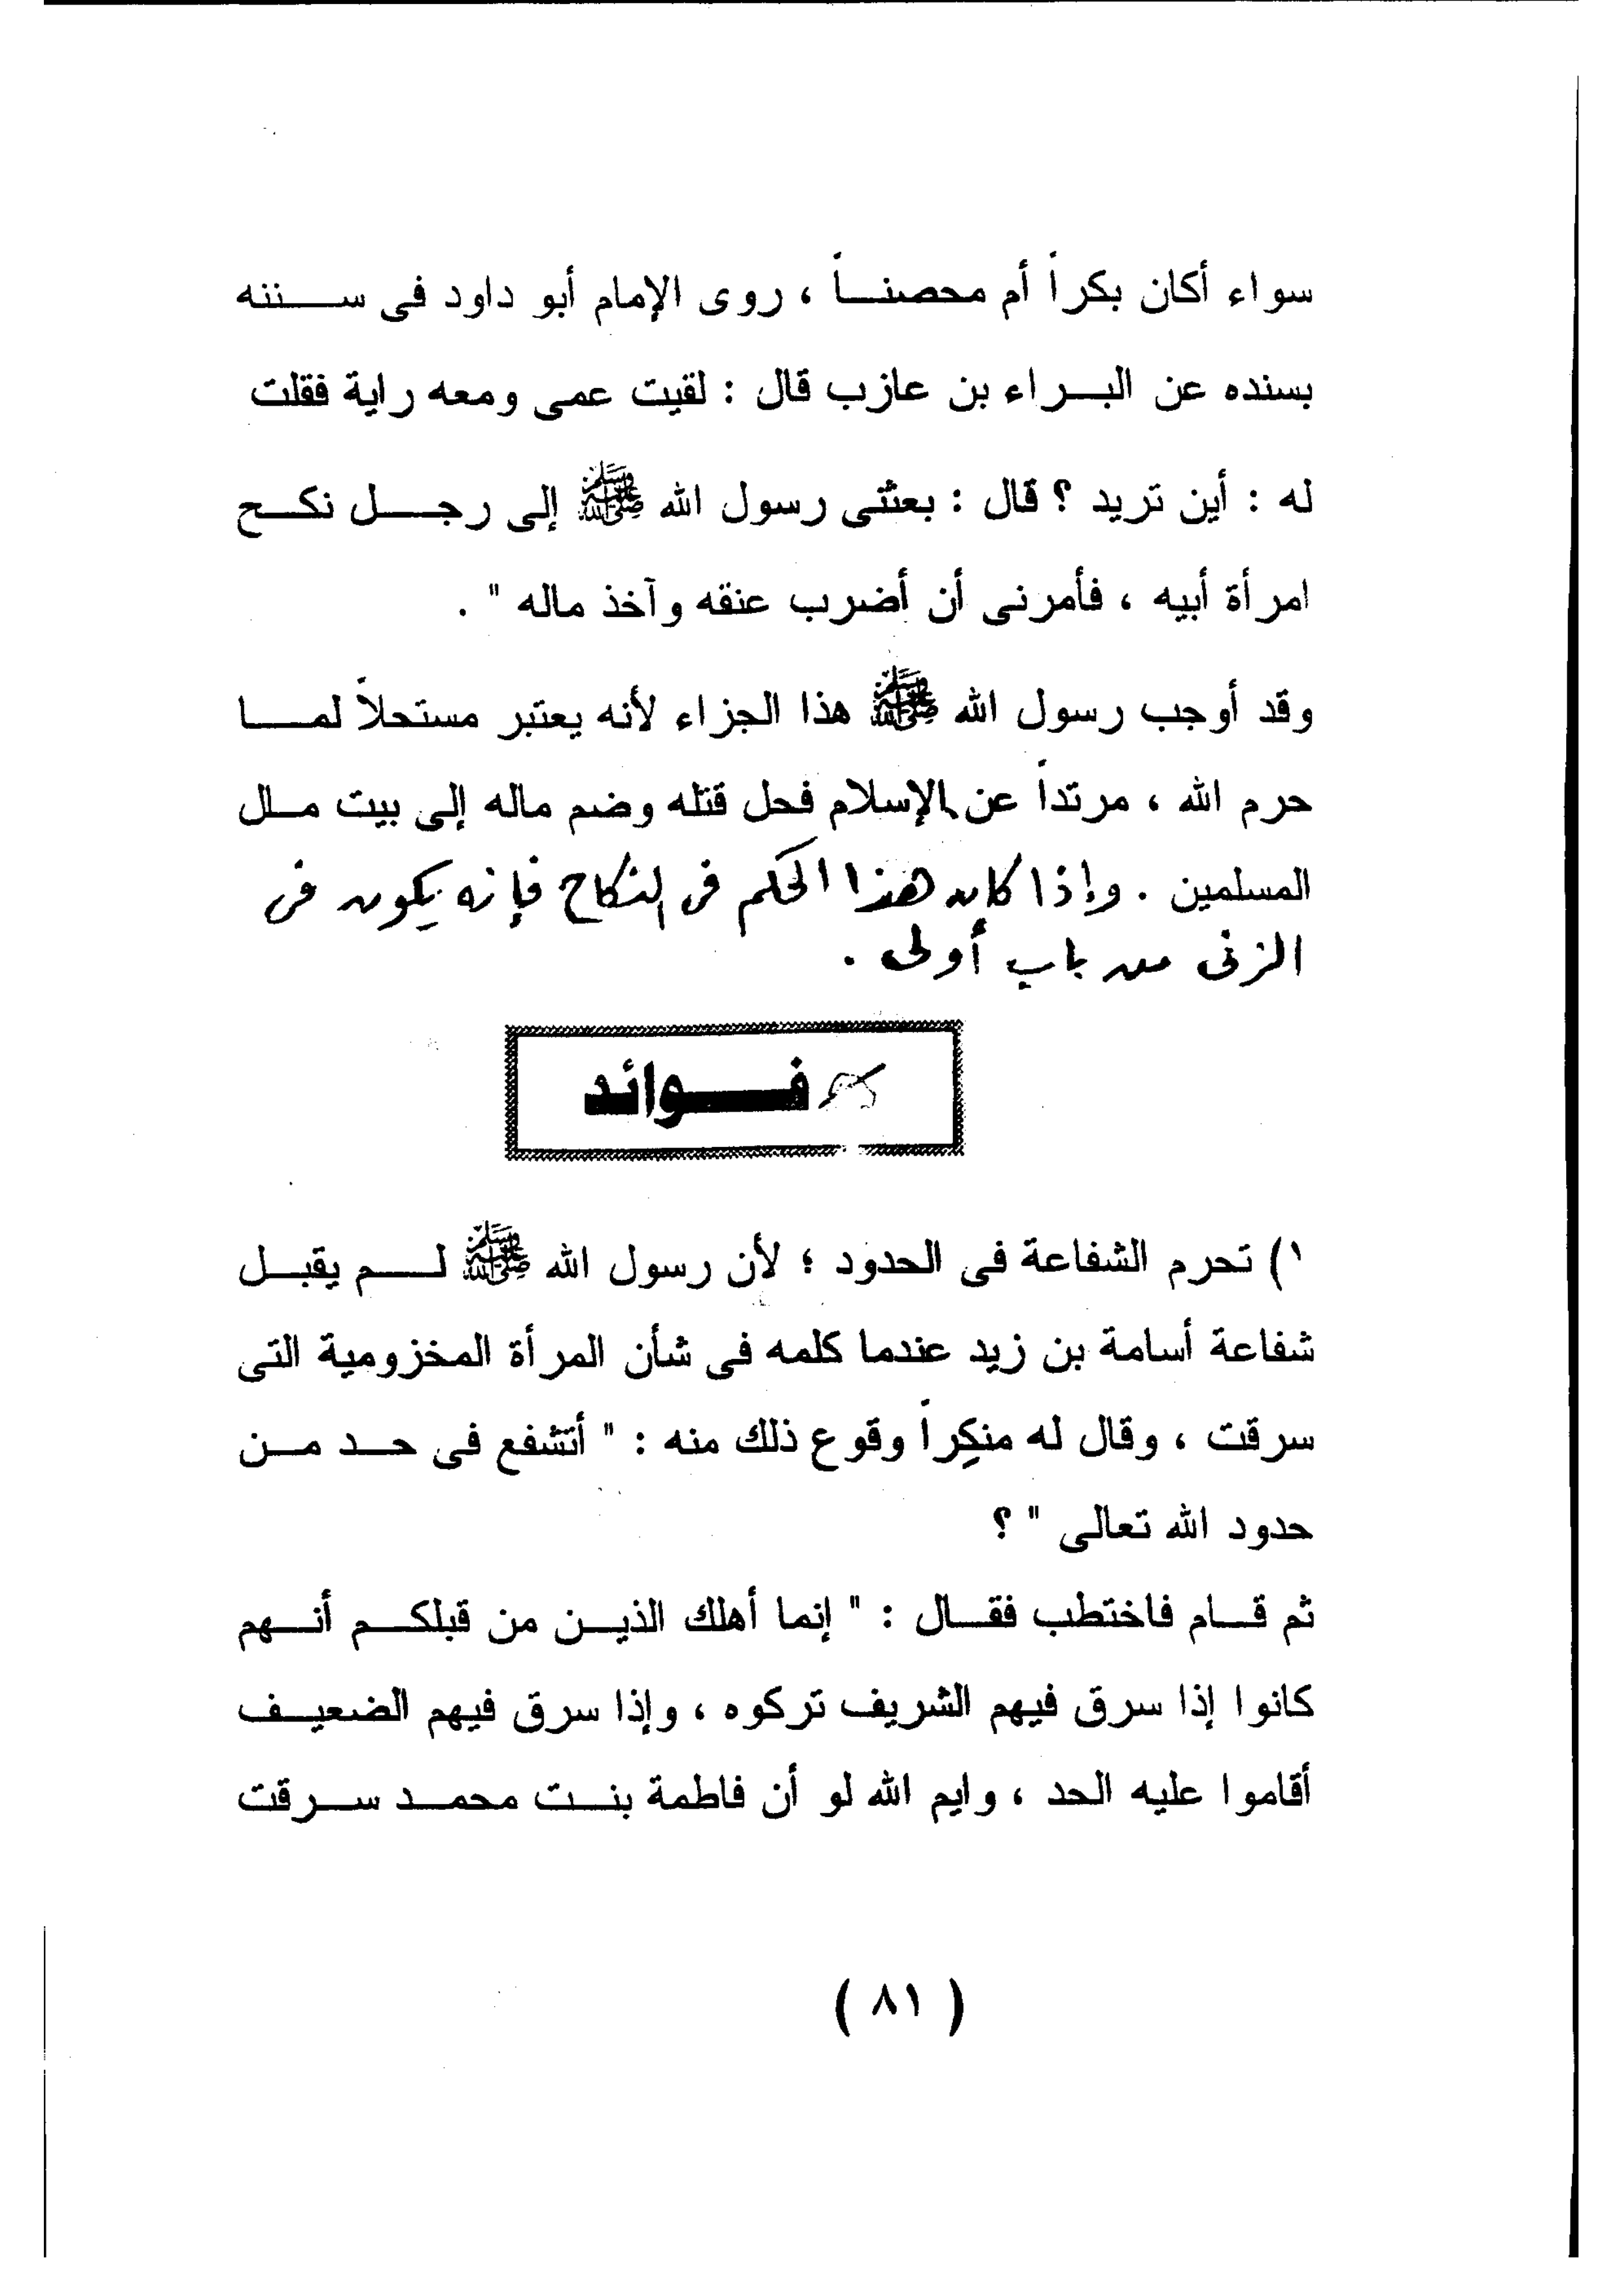 سواء أكان بكراً أم محصناً ، روى الإمام أبو داود فى سننه
بسنده عن البراء بن عازب قال : لقيت عمى ومعه راية فقلت
له : أين تريد ؟ قال : بعثتى رسول الله ﷺ إلى رجل نكح
امرأة أبيه ، فأمرنى أن أضرب عنقه وآخذ ماله " .
وقد أوجب رسول الله ﷺ هذا الجزاء لأنه يعتبر مستحلاً لما
حرم الله ، مرتداً عن الإسلام فحل قتله وضم ماله إلى بيت مال
المسلمين . وإذا كان هذا الحكم فى النكاح فإنه يكون فى
الزنى من باب أولى .
فوائد
١) تحرم الشفاعة فى الحدود ؛ لأن رسول الله ﷺ لم يقبل
شفاعة أسامة بن زيد عندما كلمه فى شأن المرأة المخزومية التى
سرقت ، وقال له منكِراً وقوع ذلك منه : " أتشفع فى حد من
حدود الله تعالى " ؟
ثم قام فاختطب فقال : " إنما أهلك الذين من قبلكم أنهم
كانوا إذا سرق فيهم الشريف تركوه ، وإذا سرق فيهم الضعيف
أقاموا عليه الحد ، وايم الله لو أن فاطمة بنت محمد سرقت
( ٨١ )